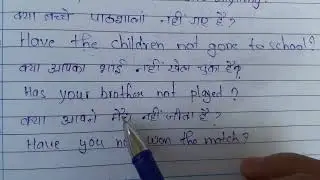 क्या बच्चे पाठशाला नहीं गए हैं?
Have the children not gone to school?
क्या आपका भाई नहीं खेल चुका है?
Has your brother not played?
क्या आपने मैच नहीं जीता है?
Have you no won the match?